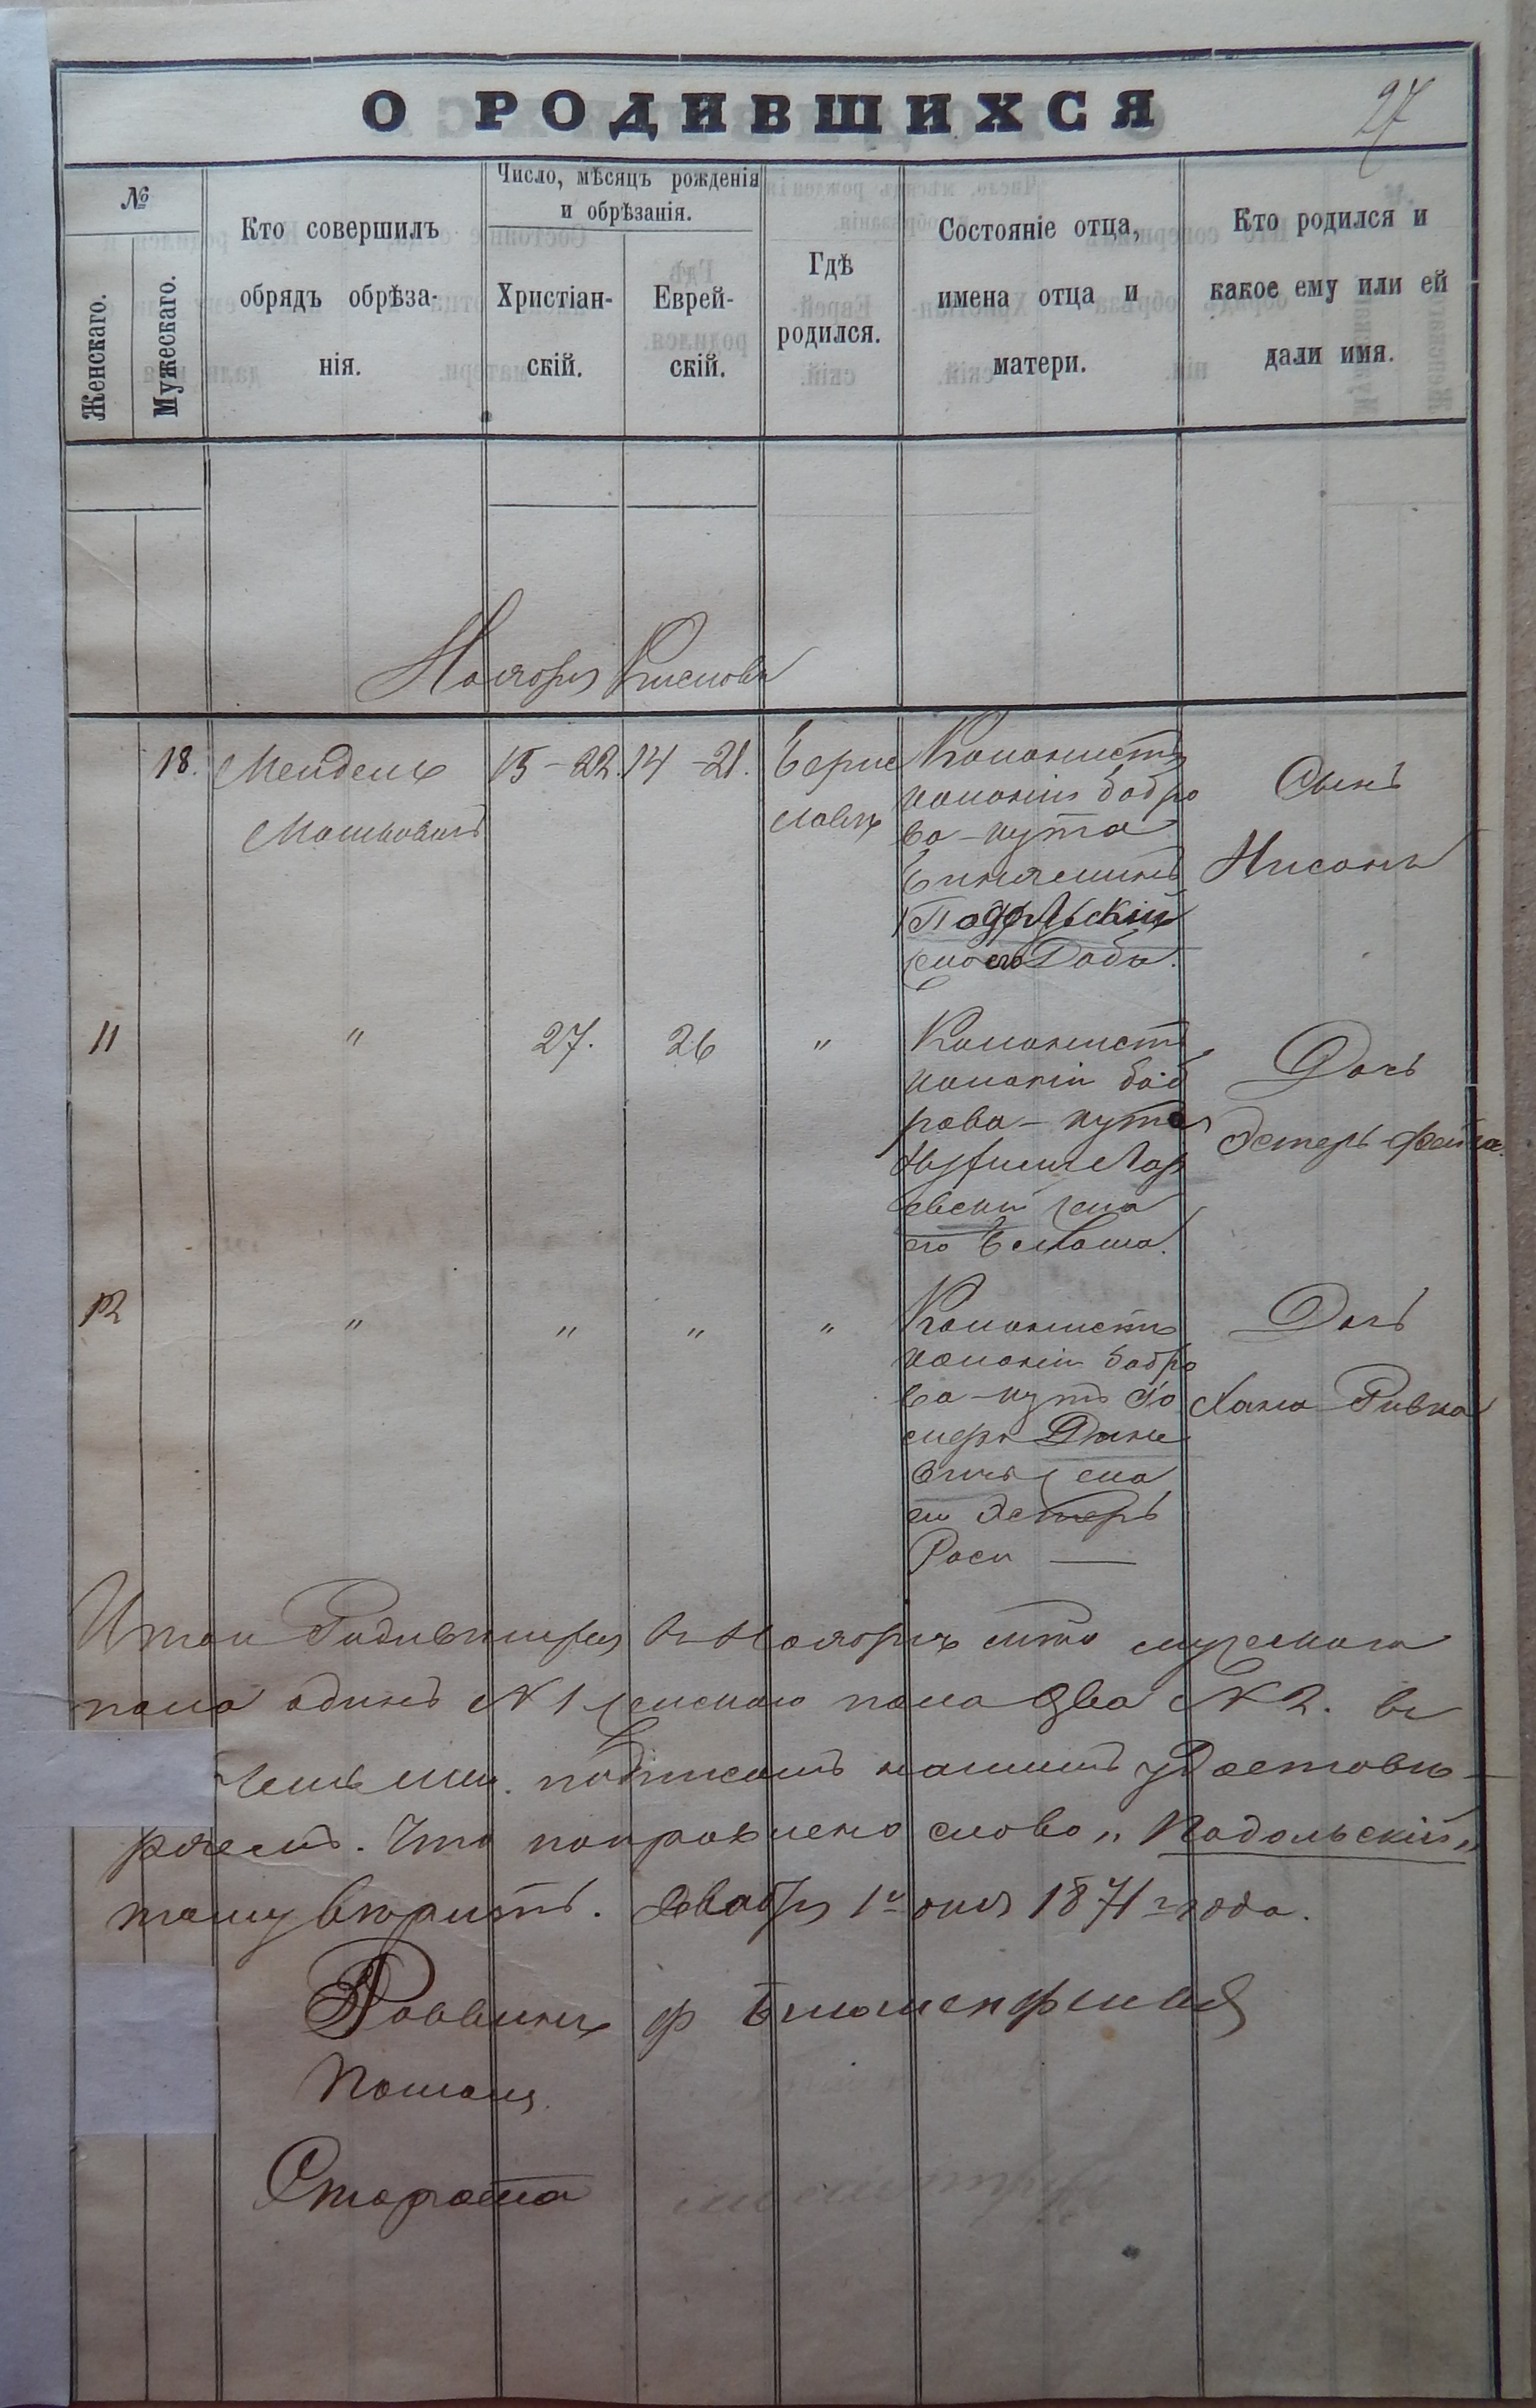 О РОДИВШИХСЯ
27
№
Женскаго.
Мужескаго.
Кто совершилъ
обрядъ обрѣза-
нія.
Число, мѣсяцъ рожденія
и обрѣзанія.
Христіан-
скій.
Еврей-
скій.
Гдѣ
родился.
Состояніе отца,
имена отца и
матери.
Кто родился и
какое ему или ей
дали имя.
Ноябрь Кислова
18. Мендель 15-22. 14-21. Берис
Мошковичъ
лавлъ
Колонистъ
колоніи бобро
ва-кута
Биняминъ
Подольскій
жена его Доба.
Сынъ
Нисонъ
11 " 27. 26 "
Колонистъ
колоніи боб
рова-кута
жена
его
Дочь
Эстеръ-Фейга.
12 " " " "
Колонистъ
колоніи бобро
ва-кутъ
жена
его Эстеръ
Раси —
Дочь
Хана Ривка
Итого Родившихся въ Ноябрѣ мѣто мужескаго
пола одинъ № 1 женскаго пола два № 2. въ
чемъ мы. подписомъ нашимъ удостовѣ-
ряемъ. Что поправлено слово „Подольскій„
тому вѣрить. Декабря 1го дня 1871го года.
Раввинъ Ф Блюменфельд
Помощ.
Староста